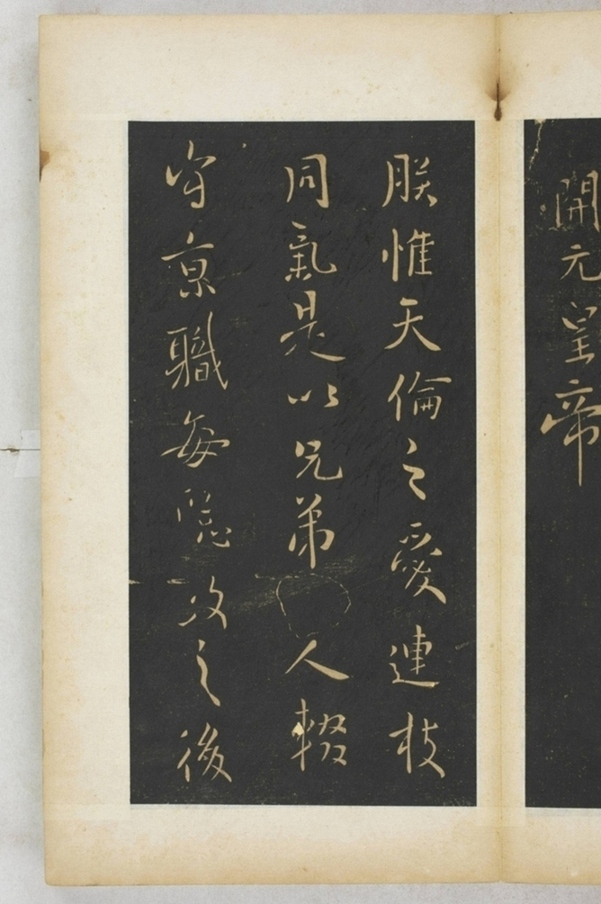 開元皇帝
朕惟天倫之愛連枝
同氣是以兄弟人輟
守京職每聽政之後